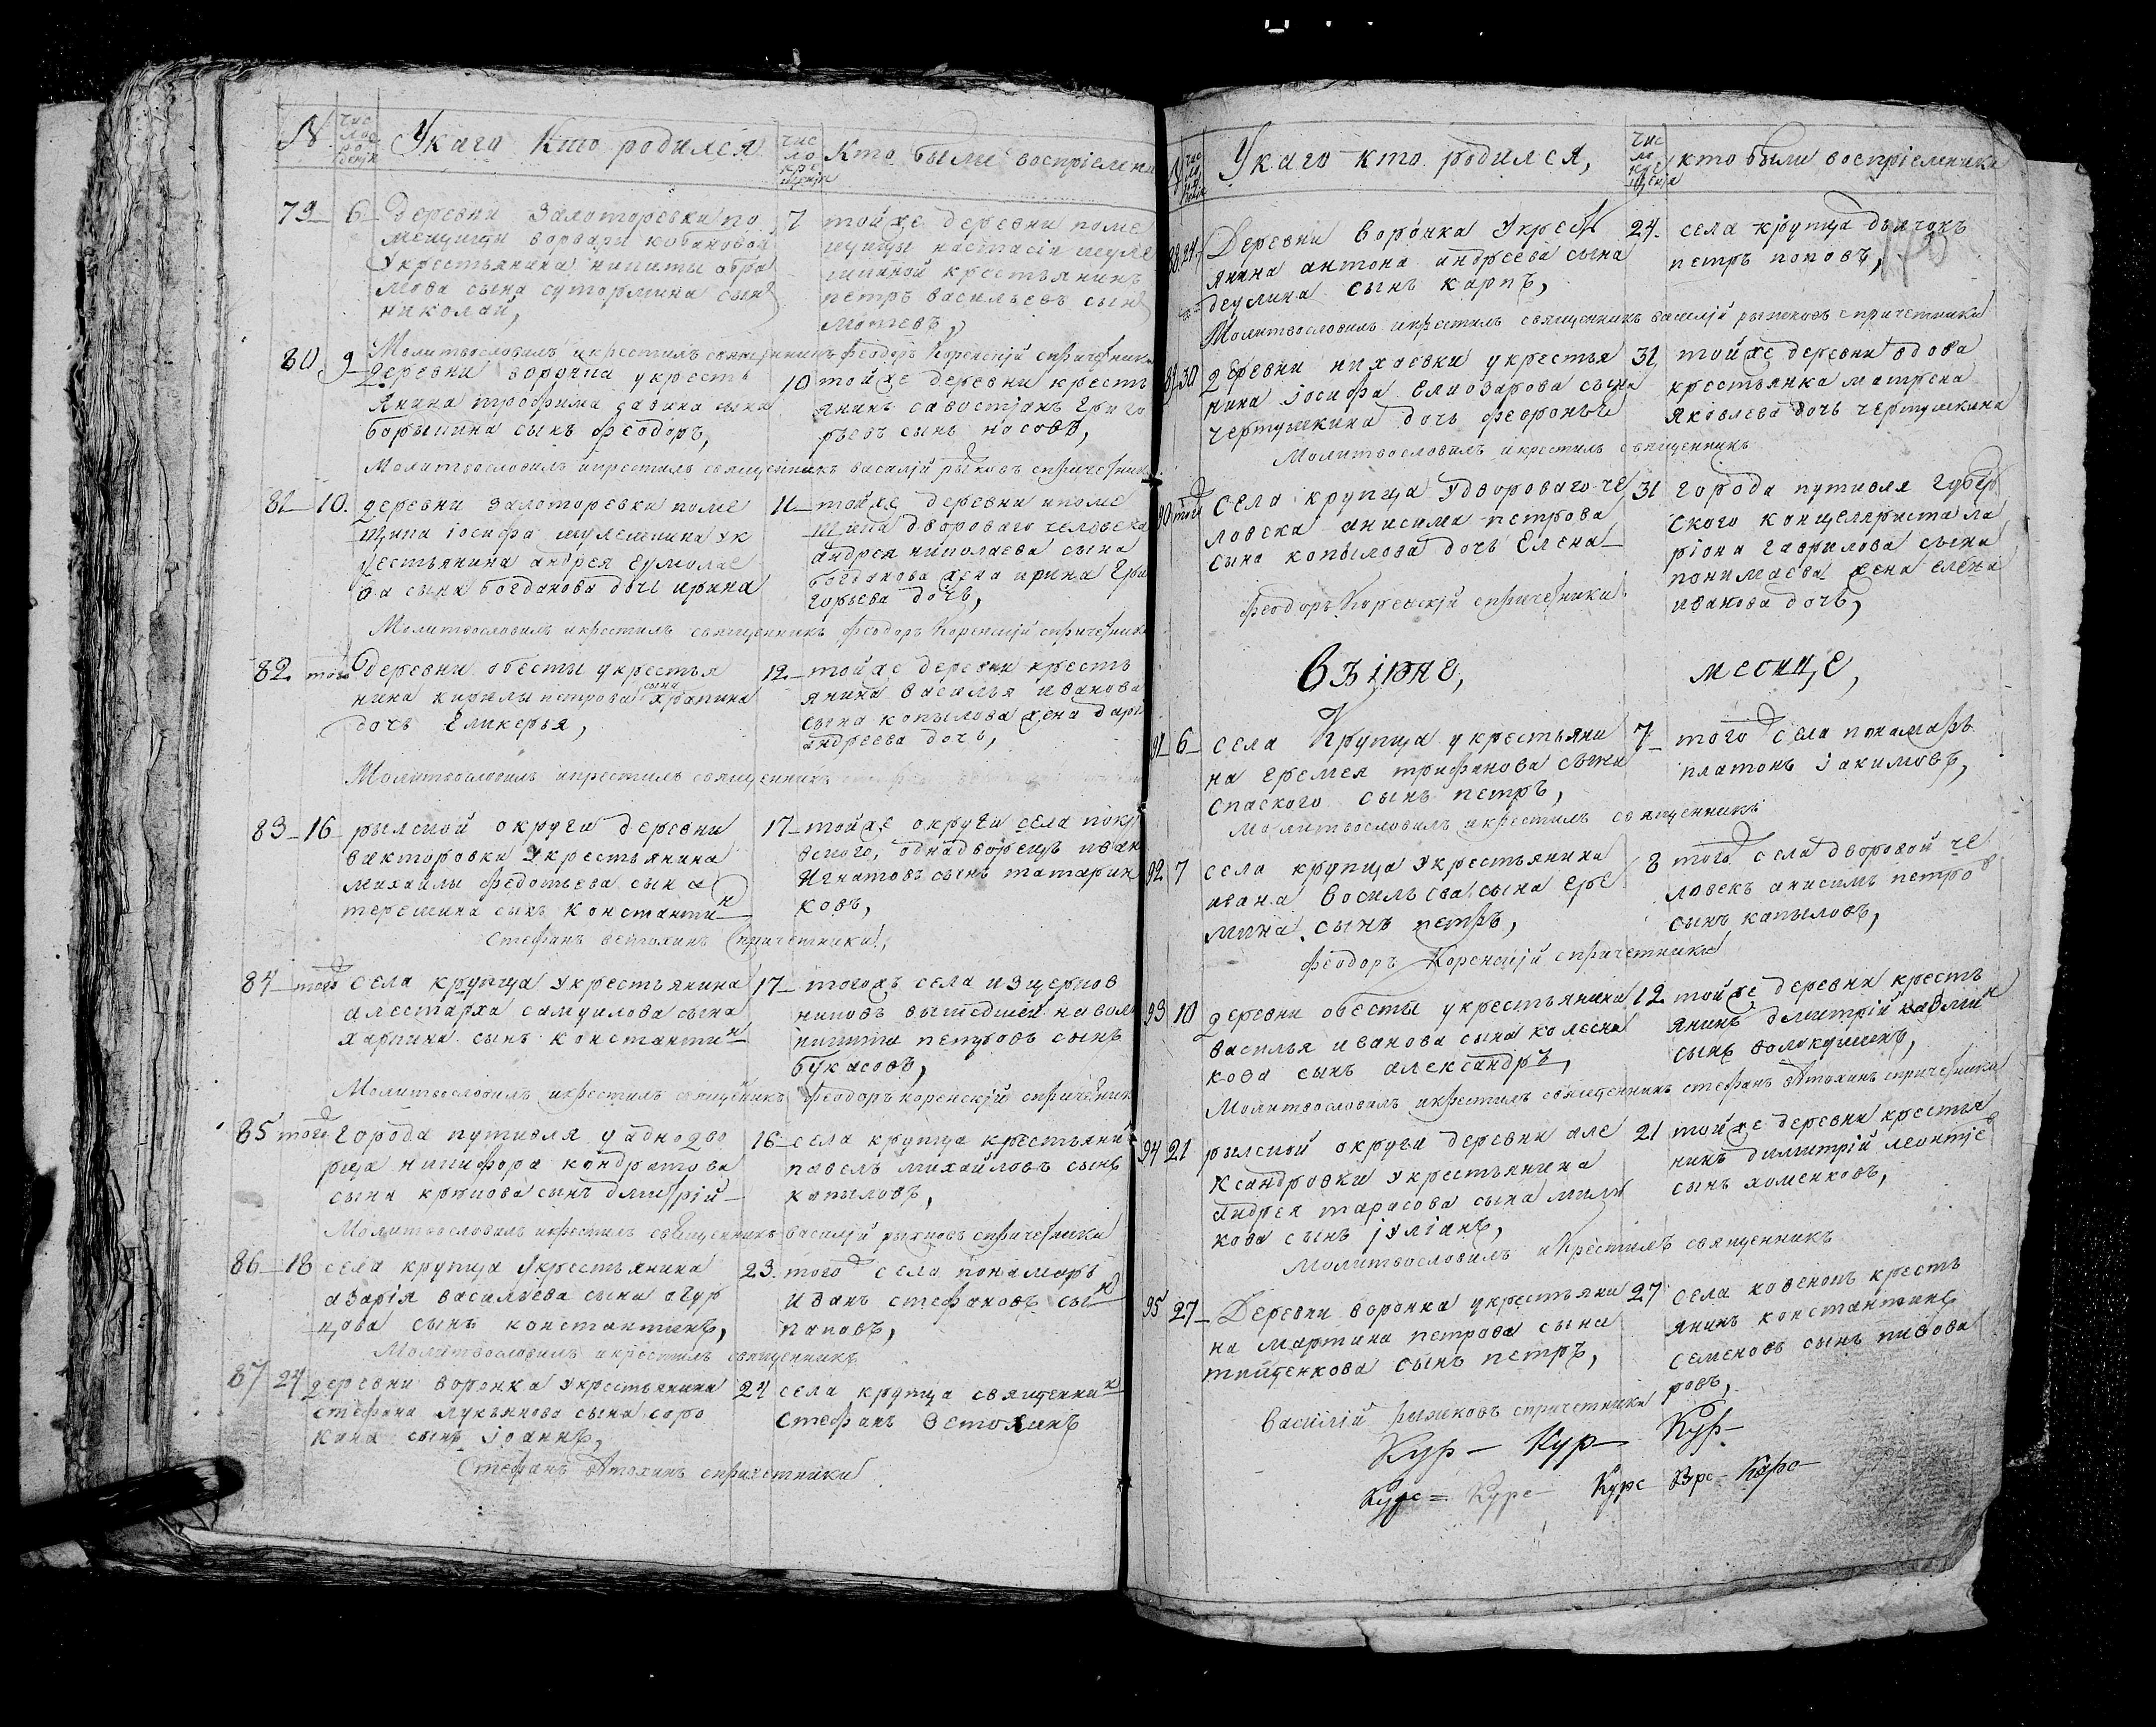 N
чис
ло
ро
денія
Укаго Кто родился
чис
ло
кре
щенія
Кто были воспріемни
79
6
деревни Залоторевки по
мещицы ворвари кобановой
Укрестьянина никиты абра
мова сына сутормина сынъ
николай,
7
тойже деревни поме
щицы настасіи шуле
шкиной крестьянинъ
петръ васильевъ сынъ
Молитвословилъ икрестилъ священникъ феодоръ Коренскій спричетники
80
9
деревни ворочка укресть
янина трофима савина сына
борыпина сынъ феодоръ,
10
тойже деревни кресть
янинъ савостіанъ Григо
рьевъ сынъ носовъ,
Молитвословилъ икрестилъ священникъ василій рыжковъ спричетники
81
10.
деревни Залоторевки поме
щика іосифа шулешкина ук
рестьянина андрея ермолае
ва сына богданова дочь ирина
11
тойже деревни ипоме
щика двороваго человека
андрея николаева сына
богданова жена ирина Гри
горьева дочь,
Молитвословилъ икрестилъ священникъ феодоръ Коренскій спричетники
82
того
деревни обесты укрестья
нина кирилы петрова сына храпина
дочь Гликерья,
12
тойже деревни кресть
янина василья иванова
сына копылова жена дарь
андреева дочь,
Молитвословилъ икрестилъ священникъ
83
16
рылской округи деревни
викторовки укрестьянина
михайлы федотьева сына
терешина сынъ Константинъ
17
тойже округи села покр
вского, однадворецъ иван
Игнатовъ сынъ татарин
ковъ,
Стефанъ ветохинъ спричетники,
84
того
села крупца укрестьянина
алестарха самуилова сына
харпина сынъ Константинъ
17
тогожъ села изцерков
никовъ вышедшей наволю
никита петровъ сынъ
букасовъ,
Молитвословилъ икрестилъ священникъ феодоръ коренскій спричетники
85
того
Города путивля у аднодво
рца никифора кондратова
сына крюкова сынъ дмитрій
16
села крупца крестьянин
павелъ михайловъ сынъ
копыловъ,
Молитвословилъ икрестилъ священникъ василій рыжковъ спричетники
86
18
села крупца Укрестьянина
азарія васильева сына огур
цова сынъ константинъ,
23.
того села понамарь
Иванъ стефановъ сынъ
поповъ,
Молитвословилъ икрестилъ священникъ
87
24
деревни воронка Укрестьянина
стефана лукьянова сына соро
кина сынъ іоаннъ,
24
села крупца священникъ
Стефанъ ветохинъ
Стефанъ ветохинъ спричетники
чис
ло
Укаго кто родился,
чис
ло
кре
щенія
кто были воспріемники
88
24
Деревни ворочка Укресть
янина антона андреева сына
деулина сынъ карпъ,
24.
села крупца дьячокъ
петръ поповъ,
Молитвословилъ икрестилъ священникъ василій рыжковъ спричетники
89
30
деревни нихаевки укрестья
нина іосифа Елиозарова сына
чертушкина дочь феоронья
31
тойже деревни вдова
крестьянка матрена
Яковлева дочь чертушкина
Молитвословилъ икрестилъ священникъ
90
того
села крупца Удвороваго че
ловека анисима петрова
сына копылова дочь Елена
31
города путивля Губер
ского концеляриста ла
ріона гаврилова сына
понимаева жена елена
иванова дочь,
феодоръ Коренскій спричетники
Въ іюне,
месяце,
91
6
села Крупца укрестьяни
на еремея трифанова сына
спаского сынъ петръ,
7
того села понамарь
платонъ іакимовъ,
Молитвословилъ икрестилъ священникъ
92
7
села крупца укрестьянина
ивана васильева сына ере
мина сынъ петръ,
8
того села дворовой че
ловекъ анисимъ петровъ
сынъ капыловъ,
феодоръ Коренскій спричетники
93
10
деревни обесты укрестьянина
василья иванова сына колесни
кова сынъ александръ,
12
тойже деревни кресть
янинъ дмитрій
сынъ волокушинъ,
Молитвословилъ икрестилъ священникъ стефанъ ветохинъ спричетники
94
21
рылской округи деревни але
ксандровки укрестьянина
андрея тарасова сына милю
кова сынъ іуліанъ,
21
тойже деревни крестья
нинъ димитрій леонтіевъ
сынъ хоменковъ,
Молитвословилъ икрестилъ священникъ
95
27
Деревни воронка укрестьяни
на мартина петрова сына
тищенкова сынъ петръ,
27
села ковенокъ кресть
янинъ константинъ
семеновъ сынъ пивова
ровъ,
Василій рыжковъ спричетники
Кур - Кур - Кур -
Курс = Курс - Курс